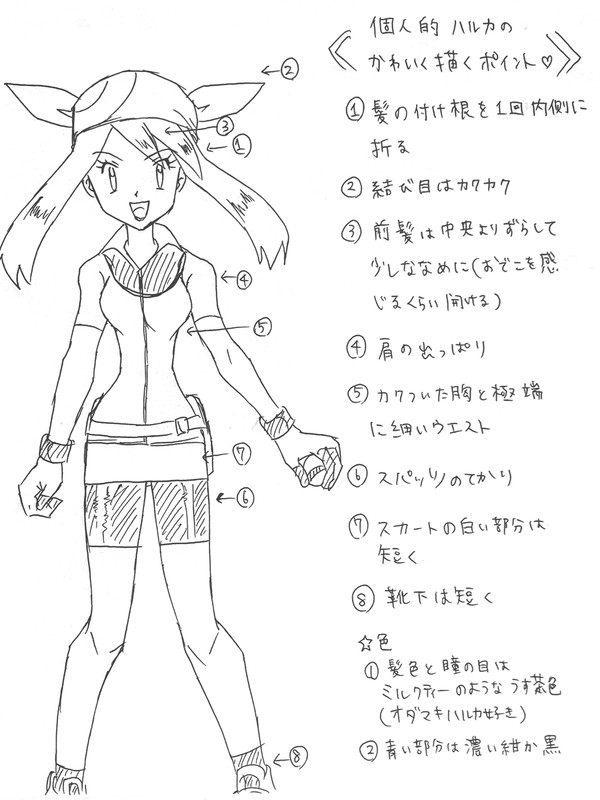 個人的 ハルカの
かわいく描くポイント♡
①髪の付け根を1回内側に
折る
②結び目はカクカク
③前髪は中央よりずらして
少しななめに(おでこを感
じるくらい開ける)
④肩の出っぱり
⑤カクついた胸と極端
に細いウエスト
⑥スパッツのてかり
⑦スカートの白い部分は
短く
⑧靴下は短く
☆色
①髪色と瞳の目は
ミルクティーのようなうす茶色
(オダマキハルカ好き)
②青い部分は濃い紺か黒
②
③
①
④
⑤
⑦
⑥
⑧